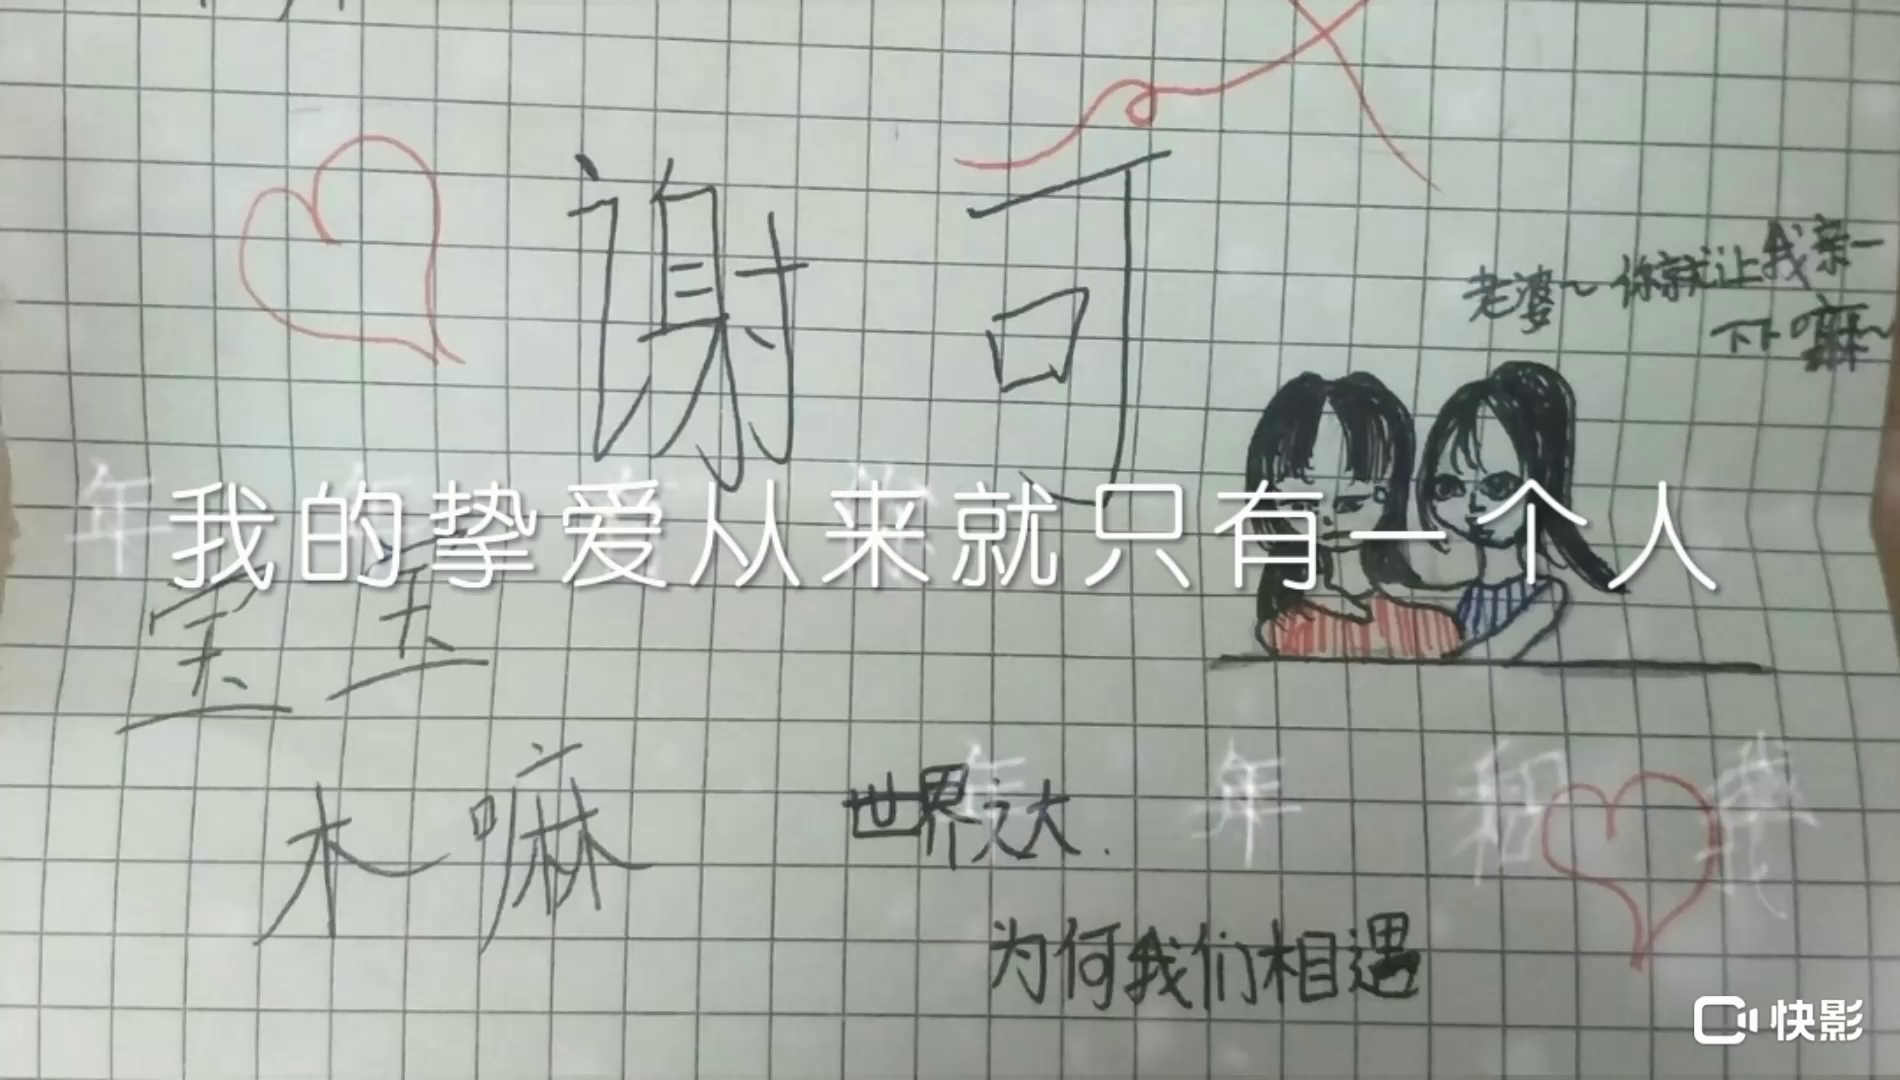 谢可
老婆~你就让我亲一
下下嘛~
年年
我的挚爱从来就只有一个人
宝宝
木嘛
年年和我
世界之大.
为何我们相遇
快影